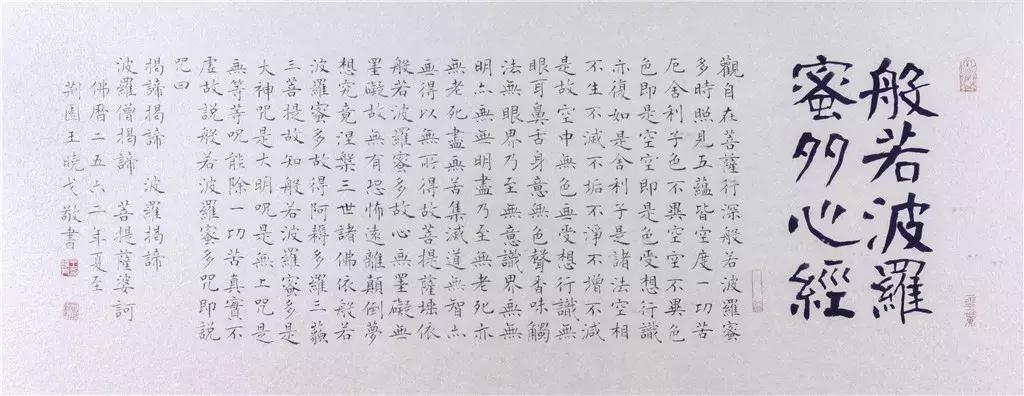 般若波羅
蜜多心經
觀自在菩薩行深般若波羅蜜
多時照見五蘊皆空度一切苦
厄舍利子色不異空空不異色
色即是空空即是色受想行識
亦復如是舍利子是諸法空相
不生不滅不垢不淨不增不減
是故空中無色無受想行識無
眼耳鼻舌身意無色聲香味觸
法無眼界乃至無意識界無無
明亦無無明盡乃至無老死亦
無老死盡無苦集滅道無智亦
無得以無所得故菩提薩埵依
般若波羅蜜多故心無罣礙無
罣礙故無有恐怖遠離顛倒夢
想究竟涅槃三世諸佛依般若
波羅蜜多故得阿耨多羅三藐
三菩提故知般若波羅蜜多是
大神咒是大明咒是無上咒是
無等等咒能除一切苦真實不
虛故說般若波羅蜜多咒即說
咒曰
揭諦揭諦 波羅揭諦
波羅僧揭諦 菩提薩婆訶
佛曆二五六二年夏至
園王曉戈敬書